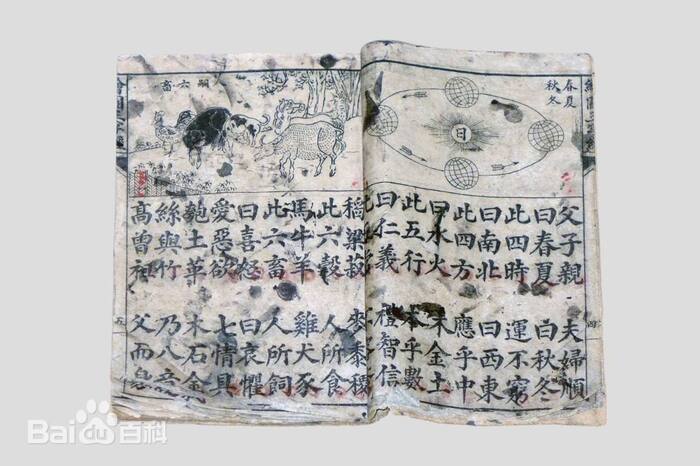 春夏
秋冬
日
父子親 夫婦順
曰春夏 曰秋冬
此四時 運不窮
曰南北 曰西東
此四方 應乎中
曰水火 木金土
此五行 本乎數
曰仁義 禮智信
四
六畜
稻粱菽 麥黍稷
此六穀 人所食
馬牛羊 雞犬豕
此六畜 人所飼
曰喜怒 曰哀懼
愛惡欲 七情具
匏土革 木石金
絲與竹 乃八
高曾祖 父而
五
Bai百科